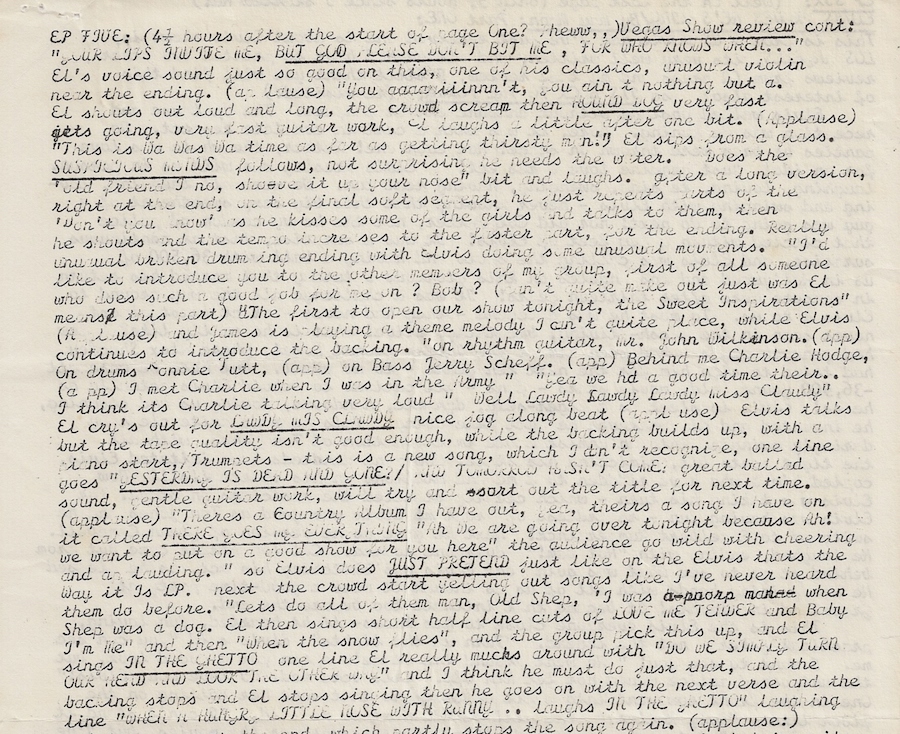 EP FIVE: (4½ hours after the start of page One? Pheww,,)Vegas Show review cont:
"YOUR LIPS INVITE ME, BUT GOD PLEASE DON'T BIT ME , FOR WHO KNOWS WHEN..."
El's voice sound just so good on this, one of his classics, unusual violin
near the ending. (ap lause) "You aaaariiinnn't, you ain t nothing but a.
El shouts out loud and long, the crowd scream then HOUND DOG very fast
gets going, very fast guitar work, El laughs a little after one bit. (Applause)
"This is Wa Was Wa time as far as getting thirsty m n!" El sips from a glass.
SUSPICIOUS MINDS follows, not surprising he needs the w ter. Does the
'old friend I no, shoeve it up your nose" bit and laughs. after a long version,
right at the end, on the final soft segment, he just repeats parts of the
'Don't you know' as he kisses some of the girls and talks to them, then
he shouts and the tempo incre ses to the faster part, for the ending. Really
unusual broken drumming ending with Elvis doing some unusual movments. "I'd
like to introduce you to the other members of my group, first of all someone
who does such a good job for me on ? Bob ? ( an't quite make out just was El
means this part) "The first to open our show tonight, the Sweet Inspirations"
(A pl use) and James is playing a theme melody I can't quite place, while Elvis
continues to introduce the backing. "on rhythm guitar, Mr. John Wilkinson.(app)
On drums Ronnie Tutt, (app) on Bass Jerry Scheff. (app) Behind me Charlie Hodge,
(a pp) I met Charlie when I was in the Army " "Yea we hd a good time their..
I think its Charlie talking very loud " Well Lawdy Lawdy Lawdy Miss Clawdy"
El cry's out for LAWDY MIS CLAWDY nice jog along beat (appl use) Elvis talks
but the tape quality isn't good enough, while the backing builds up, with a
piano start,/Trumpets - this is a new song, which I d'n't recognise, one line
goes "YESTERDAY IS DEAD AND GONE?/ AND TOMORROW HASN'T COME: great ballad
sound, gentle guitar work, will try and sort out the title for next time.
(appl use) "Theres a Country Album I have out, yea, theirs a song I have on
it called THERE GOES MY EVER THING "Ah We are going over tonight because Ah!
we want to put on a good show for you here" the audience go wild with cheering
and ap lauding. " so Elvis does JUST PRETEND just like on the Elvis thats the
Way it Is LP. next the crowd start yelling out songs like I've never heard
them do before. "Lets do all of them man, Old Shep, 'I was when
Shep was a dog. El then sings short half line cuts of LOVE ME TENDER and Baby
I'm Me" and then "When the snow flies", and the group pick this up, and El
sings IN THE GHETTO one line El really mucks around with "DO WE SIMPLY TURN
OUR HEAD AND LOOK THE OTHER WAY" and I think he must do just that, and the
backing stops and El stops singing then he goes on with the next verse and the
line "WHEN A HUNGRY LITTLE NOSE WITH RUNNY .. laughs IN THE GHETTO" laughing
the end, which partly stops the song again. (applause:)